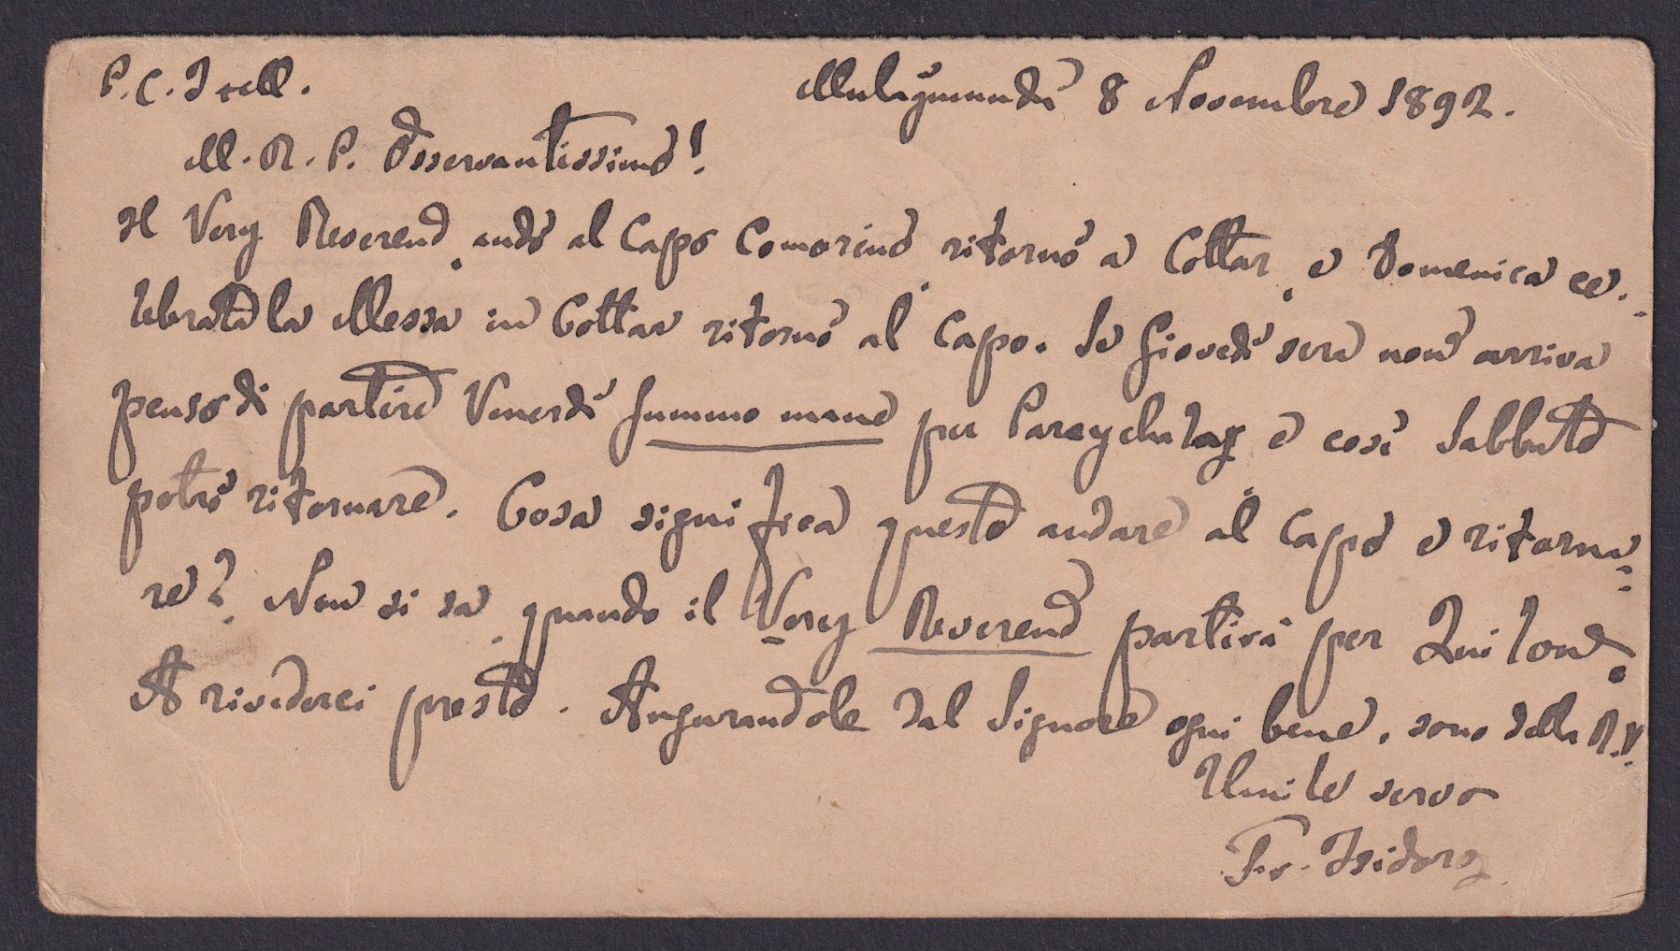 P. C. J + ell. Mulagumudu 8 Novembre 1892.
M. R. P. Osservantissimo!
Il Very Reverend andò al Capo Comorino ritornò a Cottar, e Domenica ce-
lebrata la Messa in Cottar ritornò al Capo. Se Giovedì sera non arriva
penso di partire Venerdì summo mane per e così Sabbato
potrò ritornare. Cosa significa questo andare al Capo e ritorna=
re? Non si sa quando il Very Reverend partirà per Quilon.
A rivederci presto. Augurandole dal Signore ogni bene, sono della R. V.
Umile servo
Fr. Isidoro